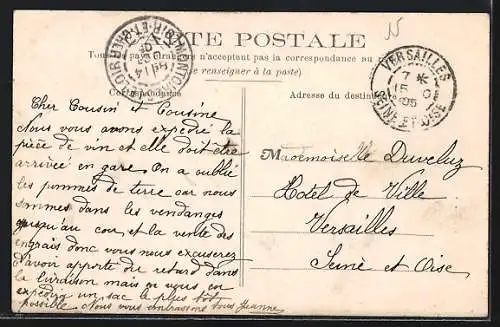 CARTE POSTALE
Tous les pays étrangers n'acceptent pas la correspondance au
(se renseigner à la poste)
Correspondance
Adresse du destinataire
VERSAILLES
7 *
15 -10
05
SEINE-ET-OISE
LOIR-ET-CHER
Cher Cousin et Cousine
Nous vous avons expédié la
pièce de vin et elle doit être
arrivée en gare. On a oublié
les pommes de terre car nous
sommes dans les vendanges
jusqu'au cou et la vente des
engrais donc vous nous excuserez
d'avoir apporté du retard dans
la livraison mais en vous en
expédira un sac le plus tôt
possible Nous vous embrassons tous Jeanne
Mademoiselle Duveluz
Hotel de Ville
Versailles
Seine et Oise